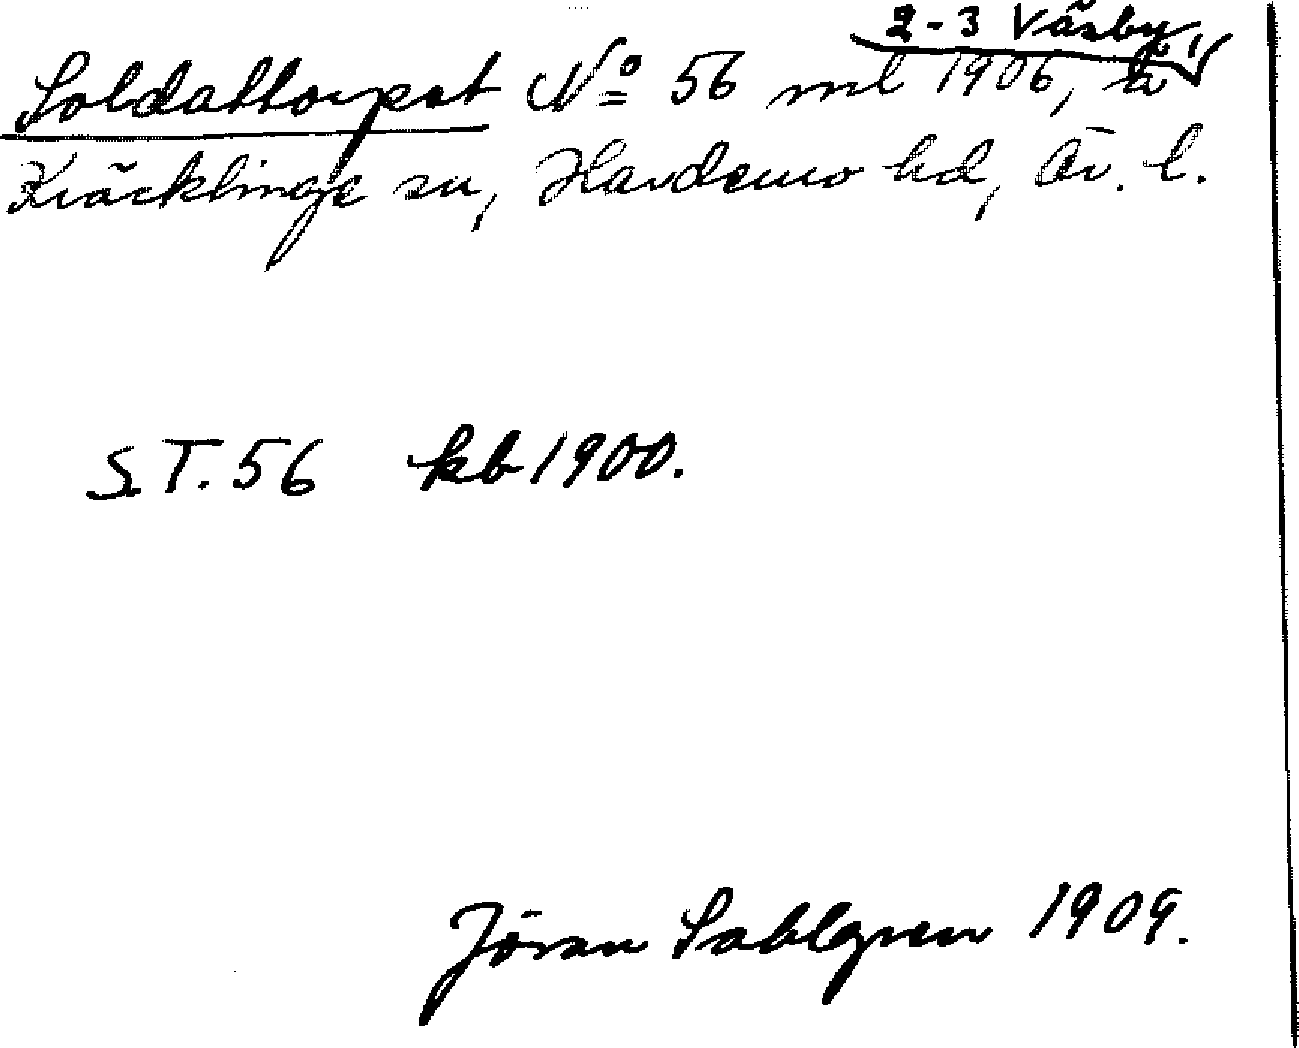 2-3 Väsby,
Soldattorpet No 56 ml 1906, i
Kräcklinge sn, Hardemo hd, Ör. l.
S.T. 56 kb 1900.
Jöran Sahlgren 1909.